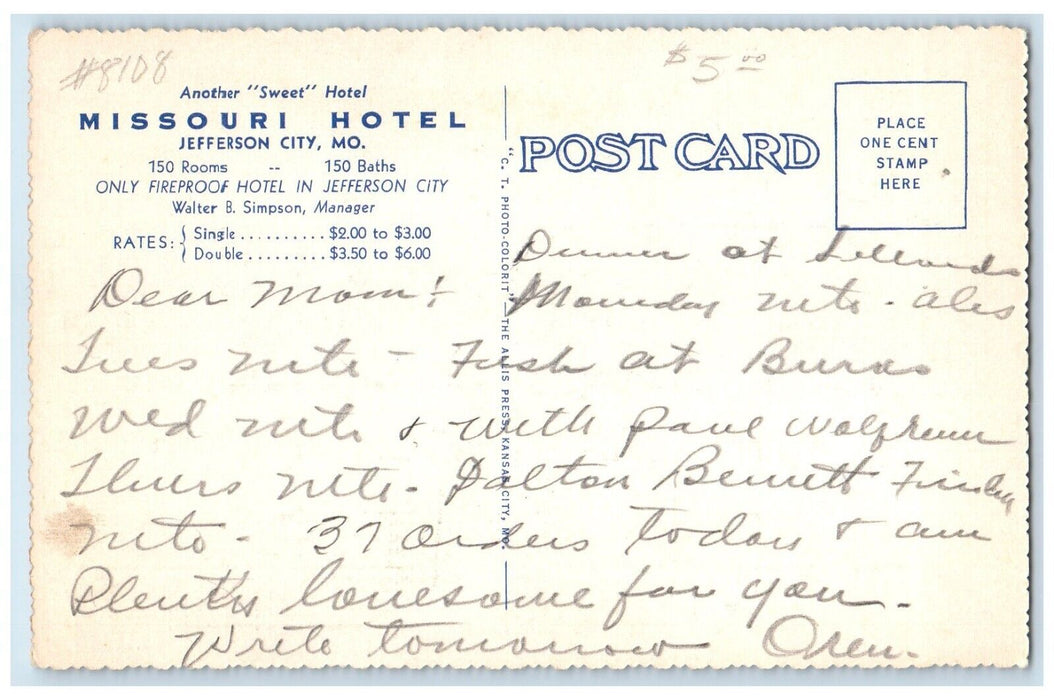 #8108
$5.00
Another "Sweet" Hotel
MISSOURI HOTEL
JEFFERSON CITY, MO.
150 Rooms -- 150 Baths
ONLY FIREPROOF HOTEL IN JEFFERSON CITY
Walter B. Simpson, Manager
RATES: { Single .......... $2.00 to $3.00
Double ......... $3.50 to $6.00
"C. T. PHOTO-COLORIT"—THE ALLIS PRESS, KANSAS CITY, MO.
POST CARD
PLACE
ONE CENT
STAMP
HERE
Dinner at
Dear Mom!
Monday nite - also
Tues nite - Fish at Burns
Wed nite & with Paul
Thurs nite - Dalton Bennett
nite - 37 orders today & am
Plenty lonesome for you.
Write tomorrow Oren.